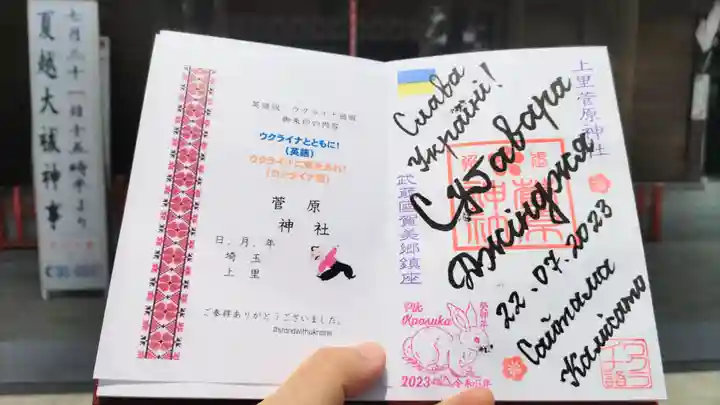 七月三十一日十五時半より
夏越大祓神事
御朱印の内容
ウクライナとともに!
(英語)
ウクライナに栄光あれ!
(ウクライナ語)
菅原
神社
日、月、年
埼玉
上里
ご参拝ありがとうございました。
#standwithukraine
上里菅原神社
Слава
Україні!
Сугавара
Джінджя
22.07.2023
Сайтама
Камісато
武蔵國賀美郷鎮座
菅原
神社
Рік
Кролика
癸卯年
2023
令和5年